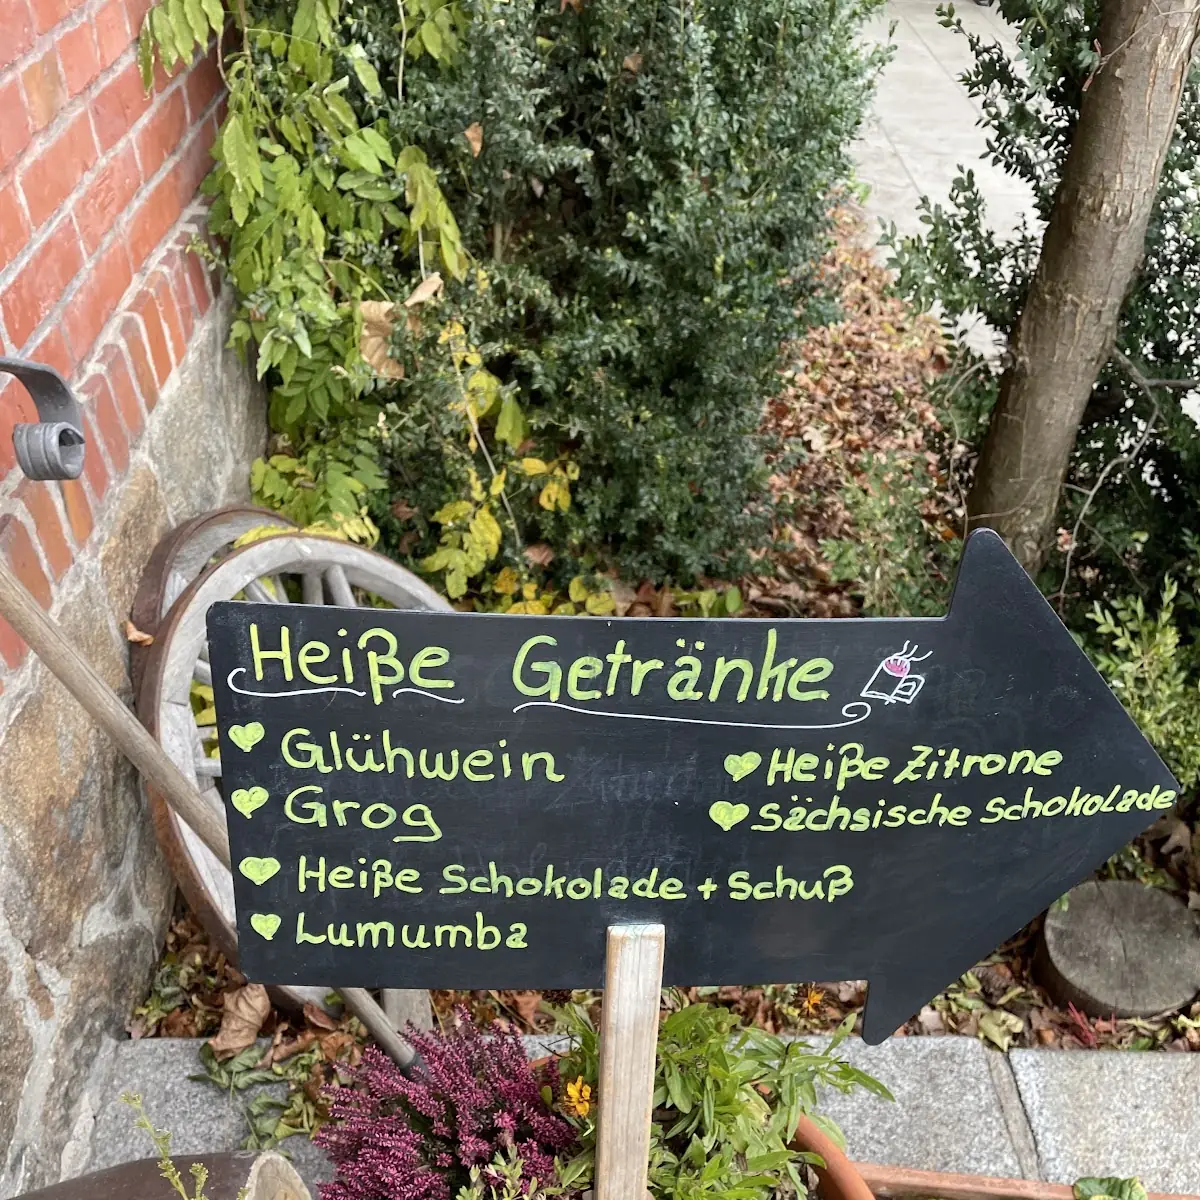 Heiße Getränke
Glühwein
Grog
Heiße Schokolade + Schuß
Lumumba
Heiße Zitrone
Sächsische Schokolade